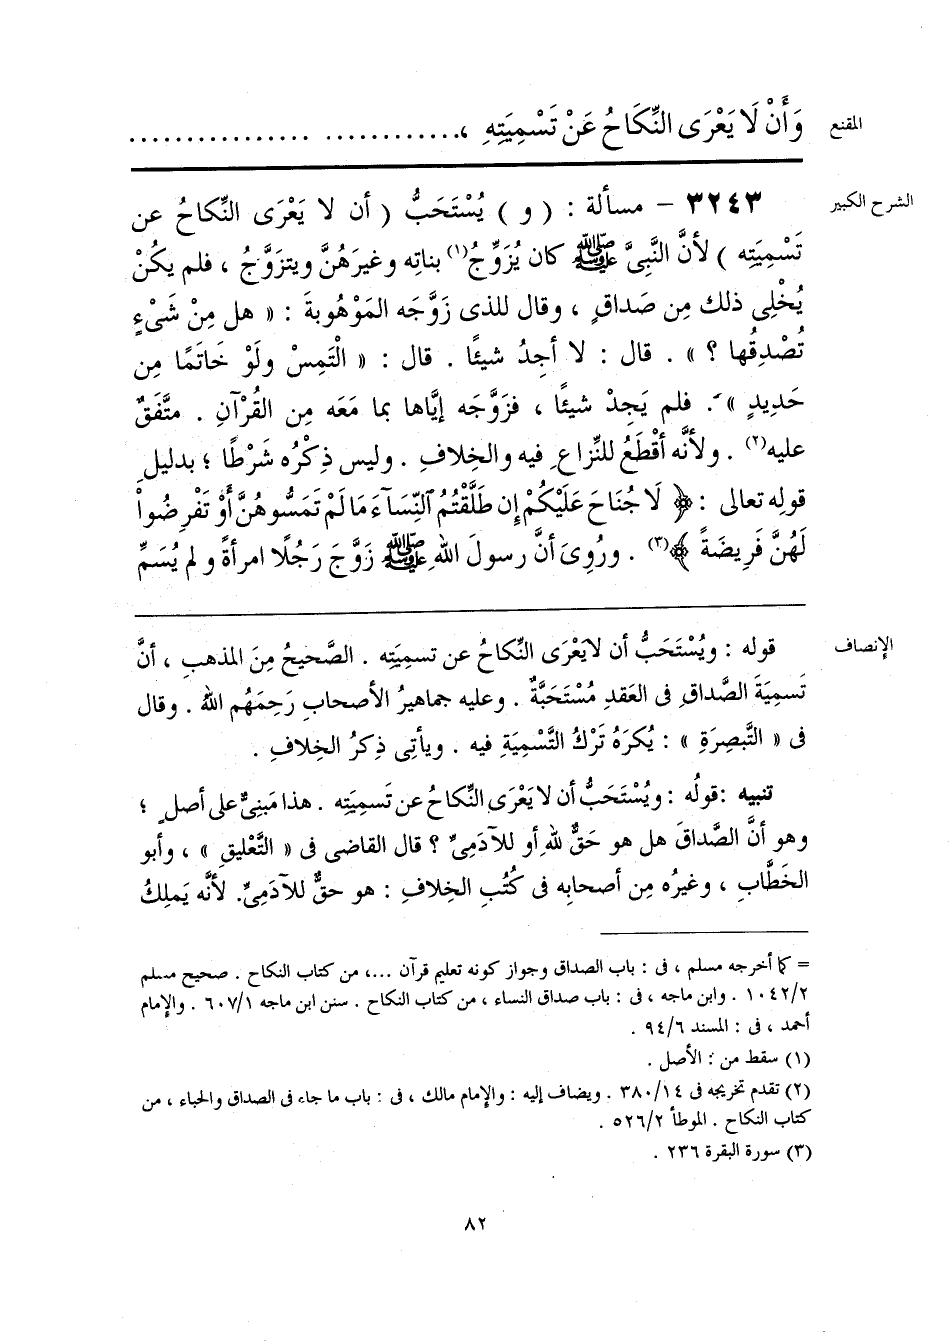 المقنع
وَأَنْ لَا يَعْرَى النِّكَاحُ عَنْ تَسْمِيَتِهِ ،............ ................
الشرح الكبير
٣٢٤٣ – مسألة : ( و ) يُسْتَحَبُّ ( أن لا يَعْرَى النِّكاحُ عن
تَسْمِيَتِه ) لأنَّ النَّبِىَّ ﷺ كان يُزَوِّجُ(١) بناتِه وغيرَهُنَّ ويتزَوَّجُ ، فلم يكُنْ
يُخْلِى ذلك مِن صَداقٍ ، وقال للذى زَوَّجَه المَوْهُوبةَ : « هل مِنْ شَىْءٍ
تُصْدِقُها ؟ » . قال : لا أجِدُ شيئًا . قال : « الْتَمِسْ ولَوْ خَاتَمًا مِن
حَدِيدٍ » . فلم يَجِدْ شيئًا ، فزَوَّجَه إيَّاها بما مَعَه مِن القُرْآنِ . متَّفَقٌ
عليه(٢) . ولأنَّه أقْطَعُ للنِّزاعِ فيه والخِلافِ . وليس ذِكْرُه شَرْطًا ؛ بدليلِ
قولِه تعالى : ﴿ لَا جُنَاحَ عَلَيْكُمْ إِن طَلَّقْتُمُ ٱلنِّسَآءَ مَا لَمْ تَمَسُّوهُنَّ أَوْ تَفْرِضُواْ
لَهُنَّ فَرِيضَةً ﴾(٣) . ورُوِىَ أنَّ رسولَ اللهِ ﷺ زَوَّجَ رَجُلًا امرأةً ولم يُسَمِّ
الإنصاف
قوله : ويُسْتَحَبُّ أن لا يَعْرَى النِّكاحُ عن تسمِيَتِه . الصَّحيحُ مِنَ المذهبِ ، أنَّ
تَسمِيَةَ الصَّداقِ فى العَقدِ مُسْتَحَبَّةٌ . وعليه جماهيرُ الأصحابِ رَحِمَهُم اللهُ . وقال
فى « التَّبصِرَةِ » : يُكرَهُ تَرْكُ التَّسْمِيَةِ فيه . ويأتِى ذِكرُ الخِلافِ .
تنبيه : قولُه : ويُسْتَحَبُّ أن لا يَعْرَى النِّكاحُ عن تَسمِيَتِه . هذا مَبنِىٌّ على أصلٍ ؛
وهو أنَّ الصَّداقَ هل هو حَقٌّ للهِ أو للآدَمِىِّ ؟ قال القاضى فى « التَّعْليقِ » ، وأبو
الخَطَّابِ ، وغيرُه مِن أصحابِه فى كُتُبِ الخِلافِ : هو حقٌّ للآدَمِىِّ. لأنَّه يَملِكُ
= كما أخرجه مسلم ، فى : باب الصداق وجواز كونه تعليم قرآن ...، من كتاب النكاح . صحيح مسلم
١٠٤٢/٢ . وابن ماجه ، فى : باب صداق النساء ، من كتاب النكاح . سنن ابن ماجه ٦٠٧/١ . والإمام
أحمد ، فى : المسند ٩٤/٦ .
(١) سقط من : الأصل .
(٢) تقدم تخريجه فى ٣٨٠/١٤ . ويضاف إليه : والإمام مالك ، فى : باب ما جاء فى الصداق والحباء ، من
كتاب النكاح . الموطأ ٥٢٦/٢ .
(٣) سورة البقرة ٢٣٦ .
٨٢